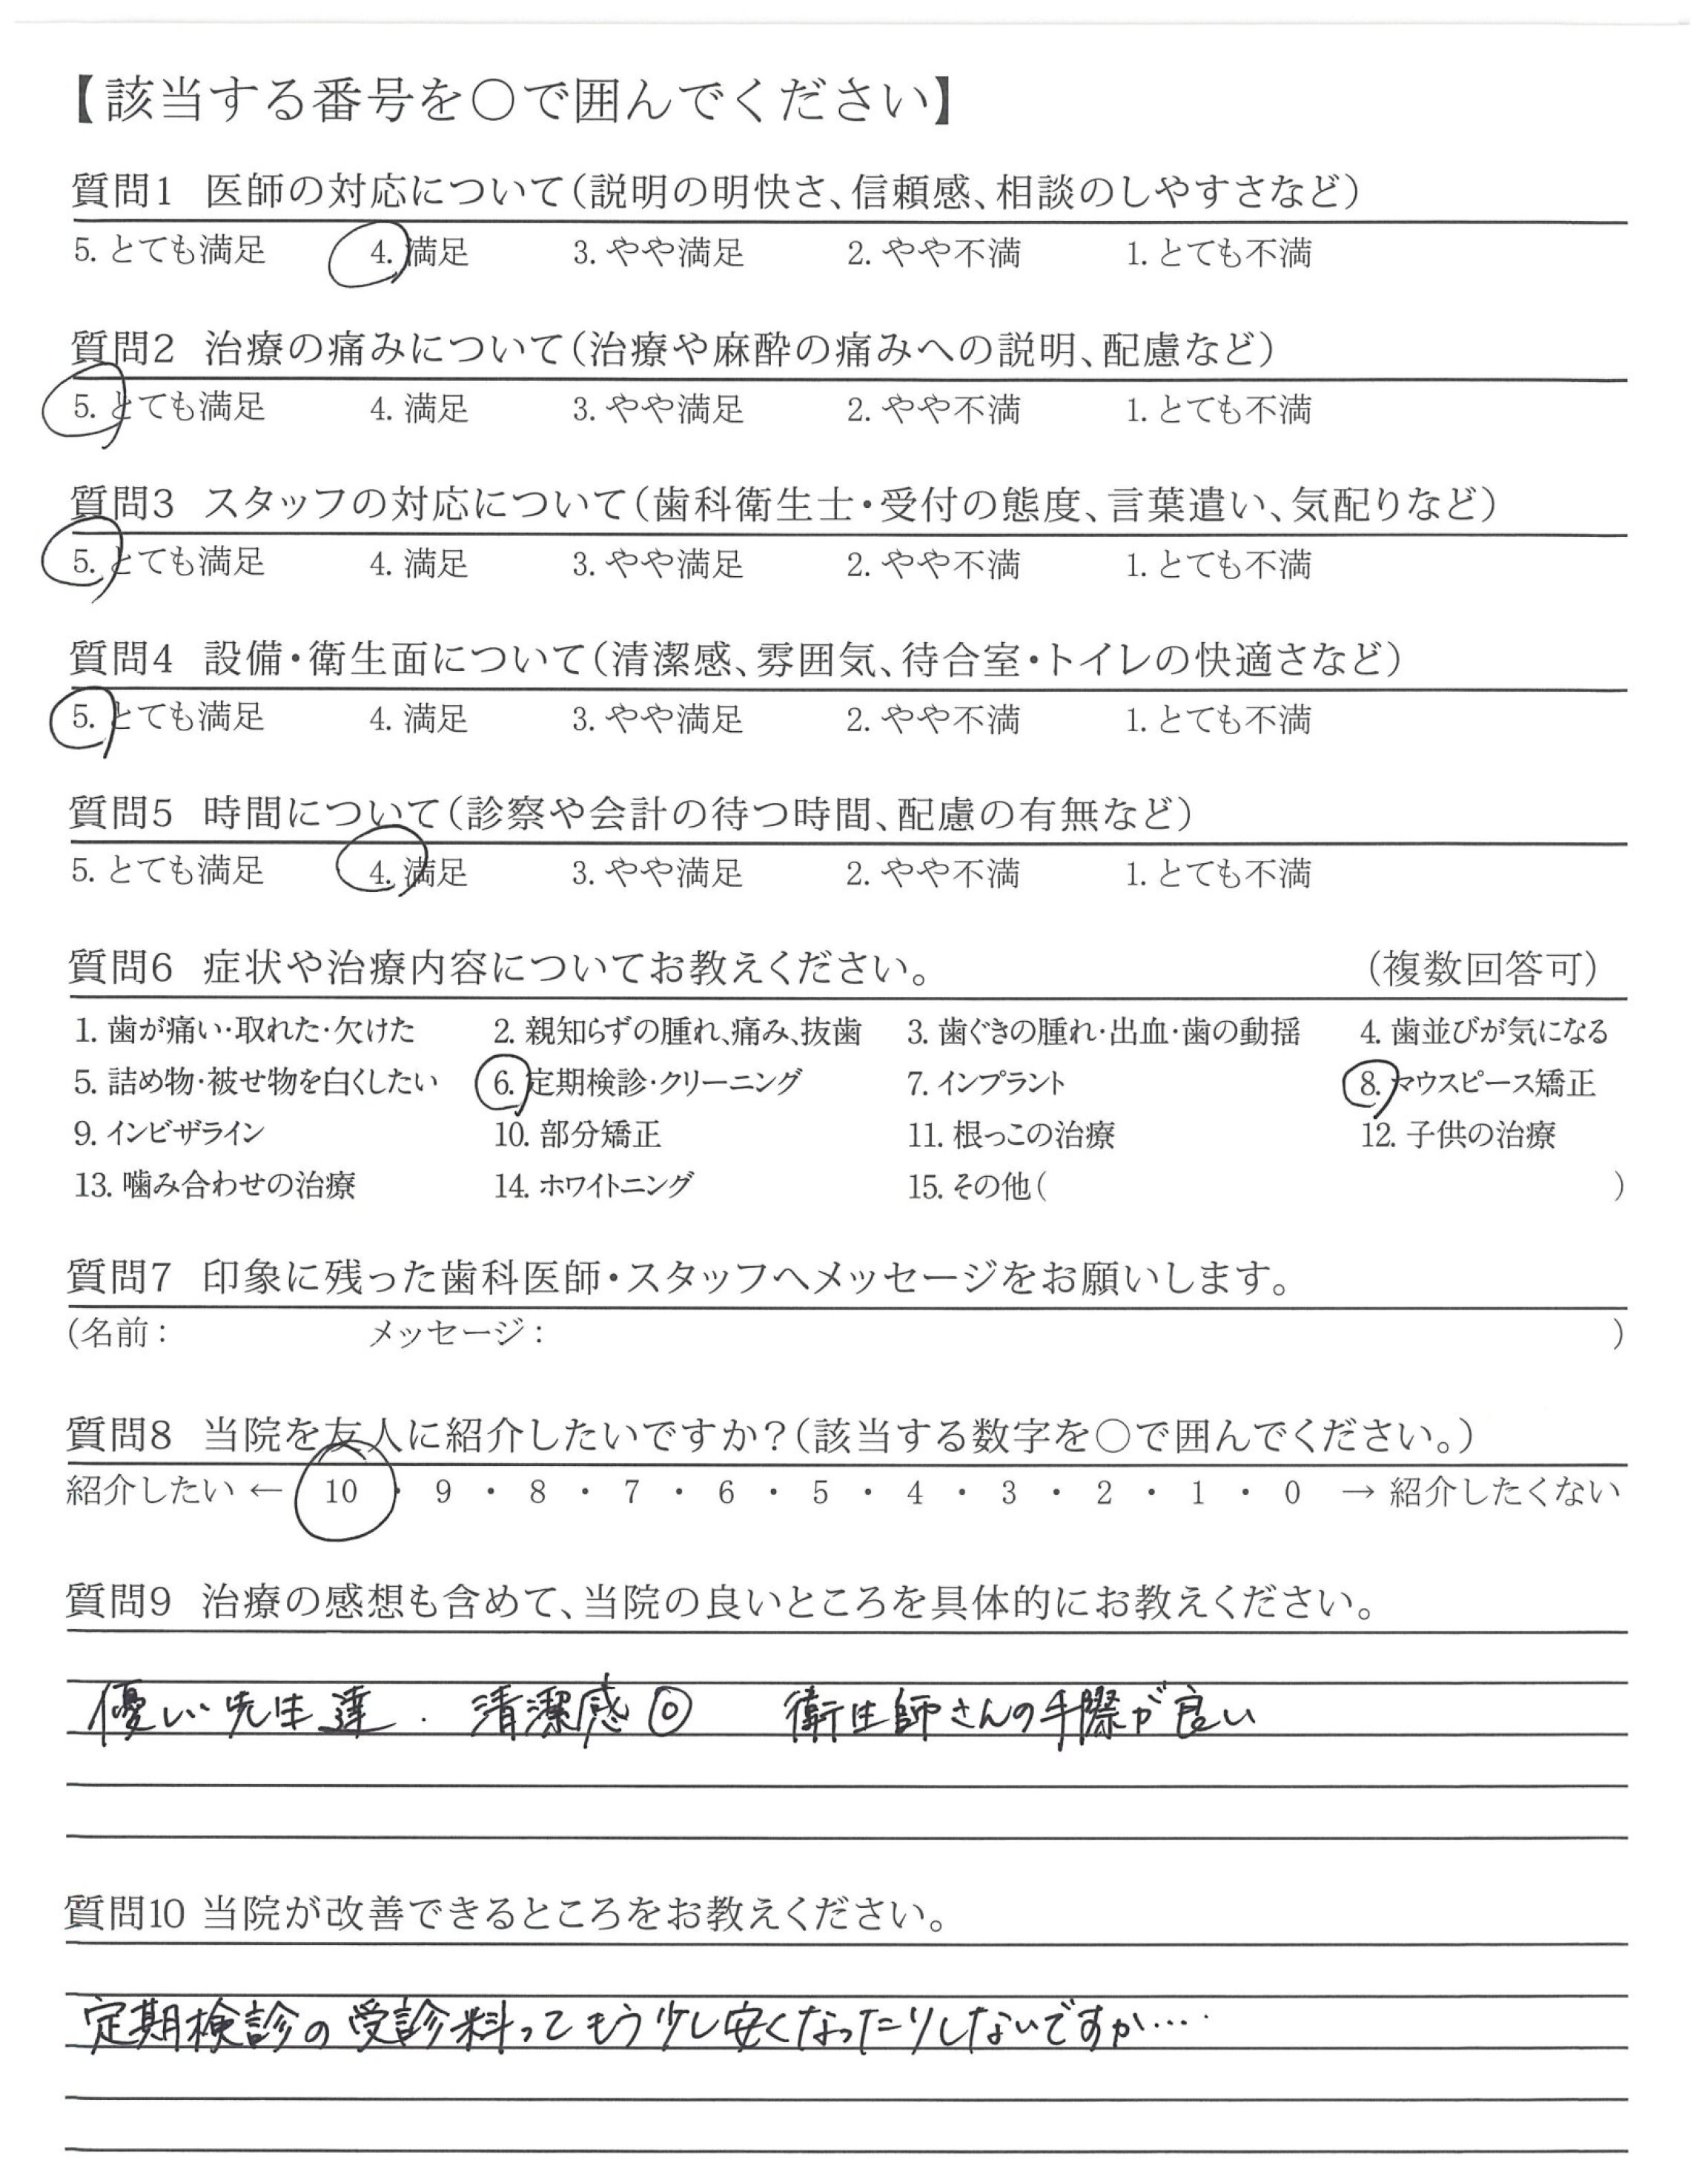 【該当する番号を〇で囲んでください】
質問1 医師の対応について(説明の明快さ、信頼感、相談のしやすさなど)
5. とても満足 4. 満足 3. やや満足 2. やや不満 1. とても不満
質問2 治療の痛みについて(治療や麻酔の痛みへの説明、配慮など)
5. とても満足 4. 満足 3. やや満足 2. やや不満 1. とても不満
質問3 スタッフの対応について(歯科衛生士・受付の態度、言葉遣い、気配りなど)
5. とても満足 4. 満足 3. やや満足 2. やや不満 1. とても不満
質問4 設備・衛生面について(清潔感、雰囲気、待合室・トイレの快適さなど)
5. とても満足 4. 満足 3. やや満足 2. やや不満 1. とても不満
質問5 時間について(診察や会計の待つ時間、配慮の有無など)
5. とても満足 4. 満足 3. やや満足 2. やや不満 1. とても不満
質問6 症状や治療内容についてお教えください。 (複数回答可)
1. 歯が痛い・取れた・欠けた 2. 親知らずの腫れ、痛み、抜歯 3. 歯ぐきの腫れ・出血・歯の動揺 4. 歯並びが気になる
5. 詰め物・被せ物を白くしたい 6. 定期検診・クリーニング 7. インプラント 8. マウスピース矯正
9. インビザライン 10. 部分矯正 11. 根っこの治療 12. 子供の治療
13. 噛み合わせの治療 14. ホワイトニング 15. その他( )
質問7 印象に残った歯科医師・スタッフへメッセージをお願いします。
(名前: メッセージ: )
質問8 当院を友人に紹介したいですか?(該当する数字を〇で囲んでください。)
紹介したい ← 10 ・ 9 ・ 8 ・ 7 ・ 6 ・ 5 ・ 4 ・ 3 ・ 2 ・ 1 ・ 0 → 紹介したくない
質問9 治療の感想も含めて、当院の良いところを具体的にお教えください。
優しい先生達. 清潔感◎ 衛生師さんの手際が良い
質問10 当院が改善できるところをお教えください。
定期検診の受診料ってもう少し安くなったりしないですか…